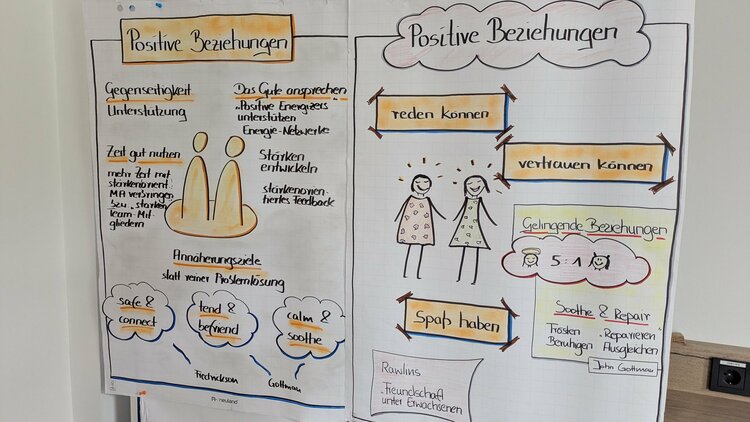 Positive Beziehungen
Gegenseitigkeit
Unterstützung
Das Gute ansprechen
"Positive Energizers
unterstützen
Energie-Netzwerke
Zeit gut nutzen
mehr Zeit mit
stärkenorient.
MA verbringen
bzw. starken
Team-Mit-
gliedern
Stärken
entwickeln
stärkenorien-
tiertes Feedback
Annäherungsziele
statt reiner Problemlösung
safe &
connect
tend &
befriend
calm &
soothe
Fredrickson
Gottman
neuland
Positive Beziehungen
reden können
vertrauen können
Gelingende Beziehungen
5:1
Soothe & Repair
Trösten
Beruhigen
Reparieren
Ausgleichen
John Gottman
Spaß haben
Rawlins
"Freundschaft
unter Erwachsenen